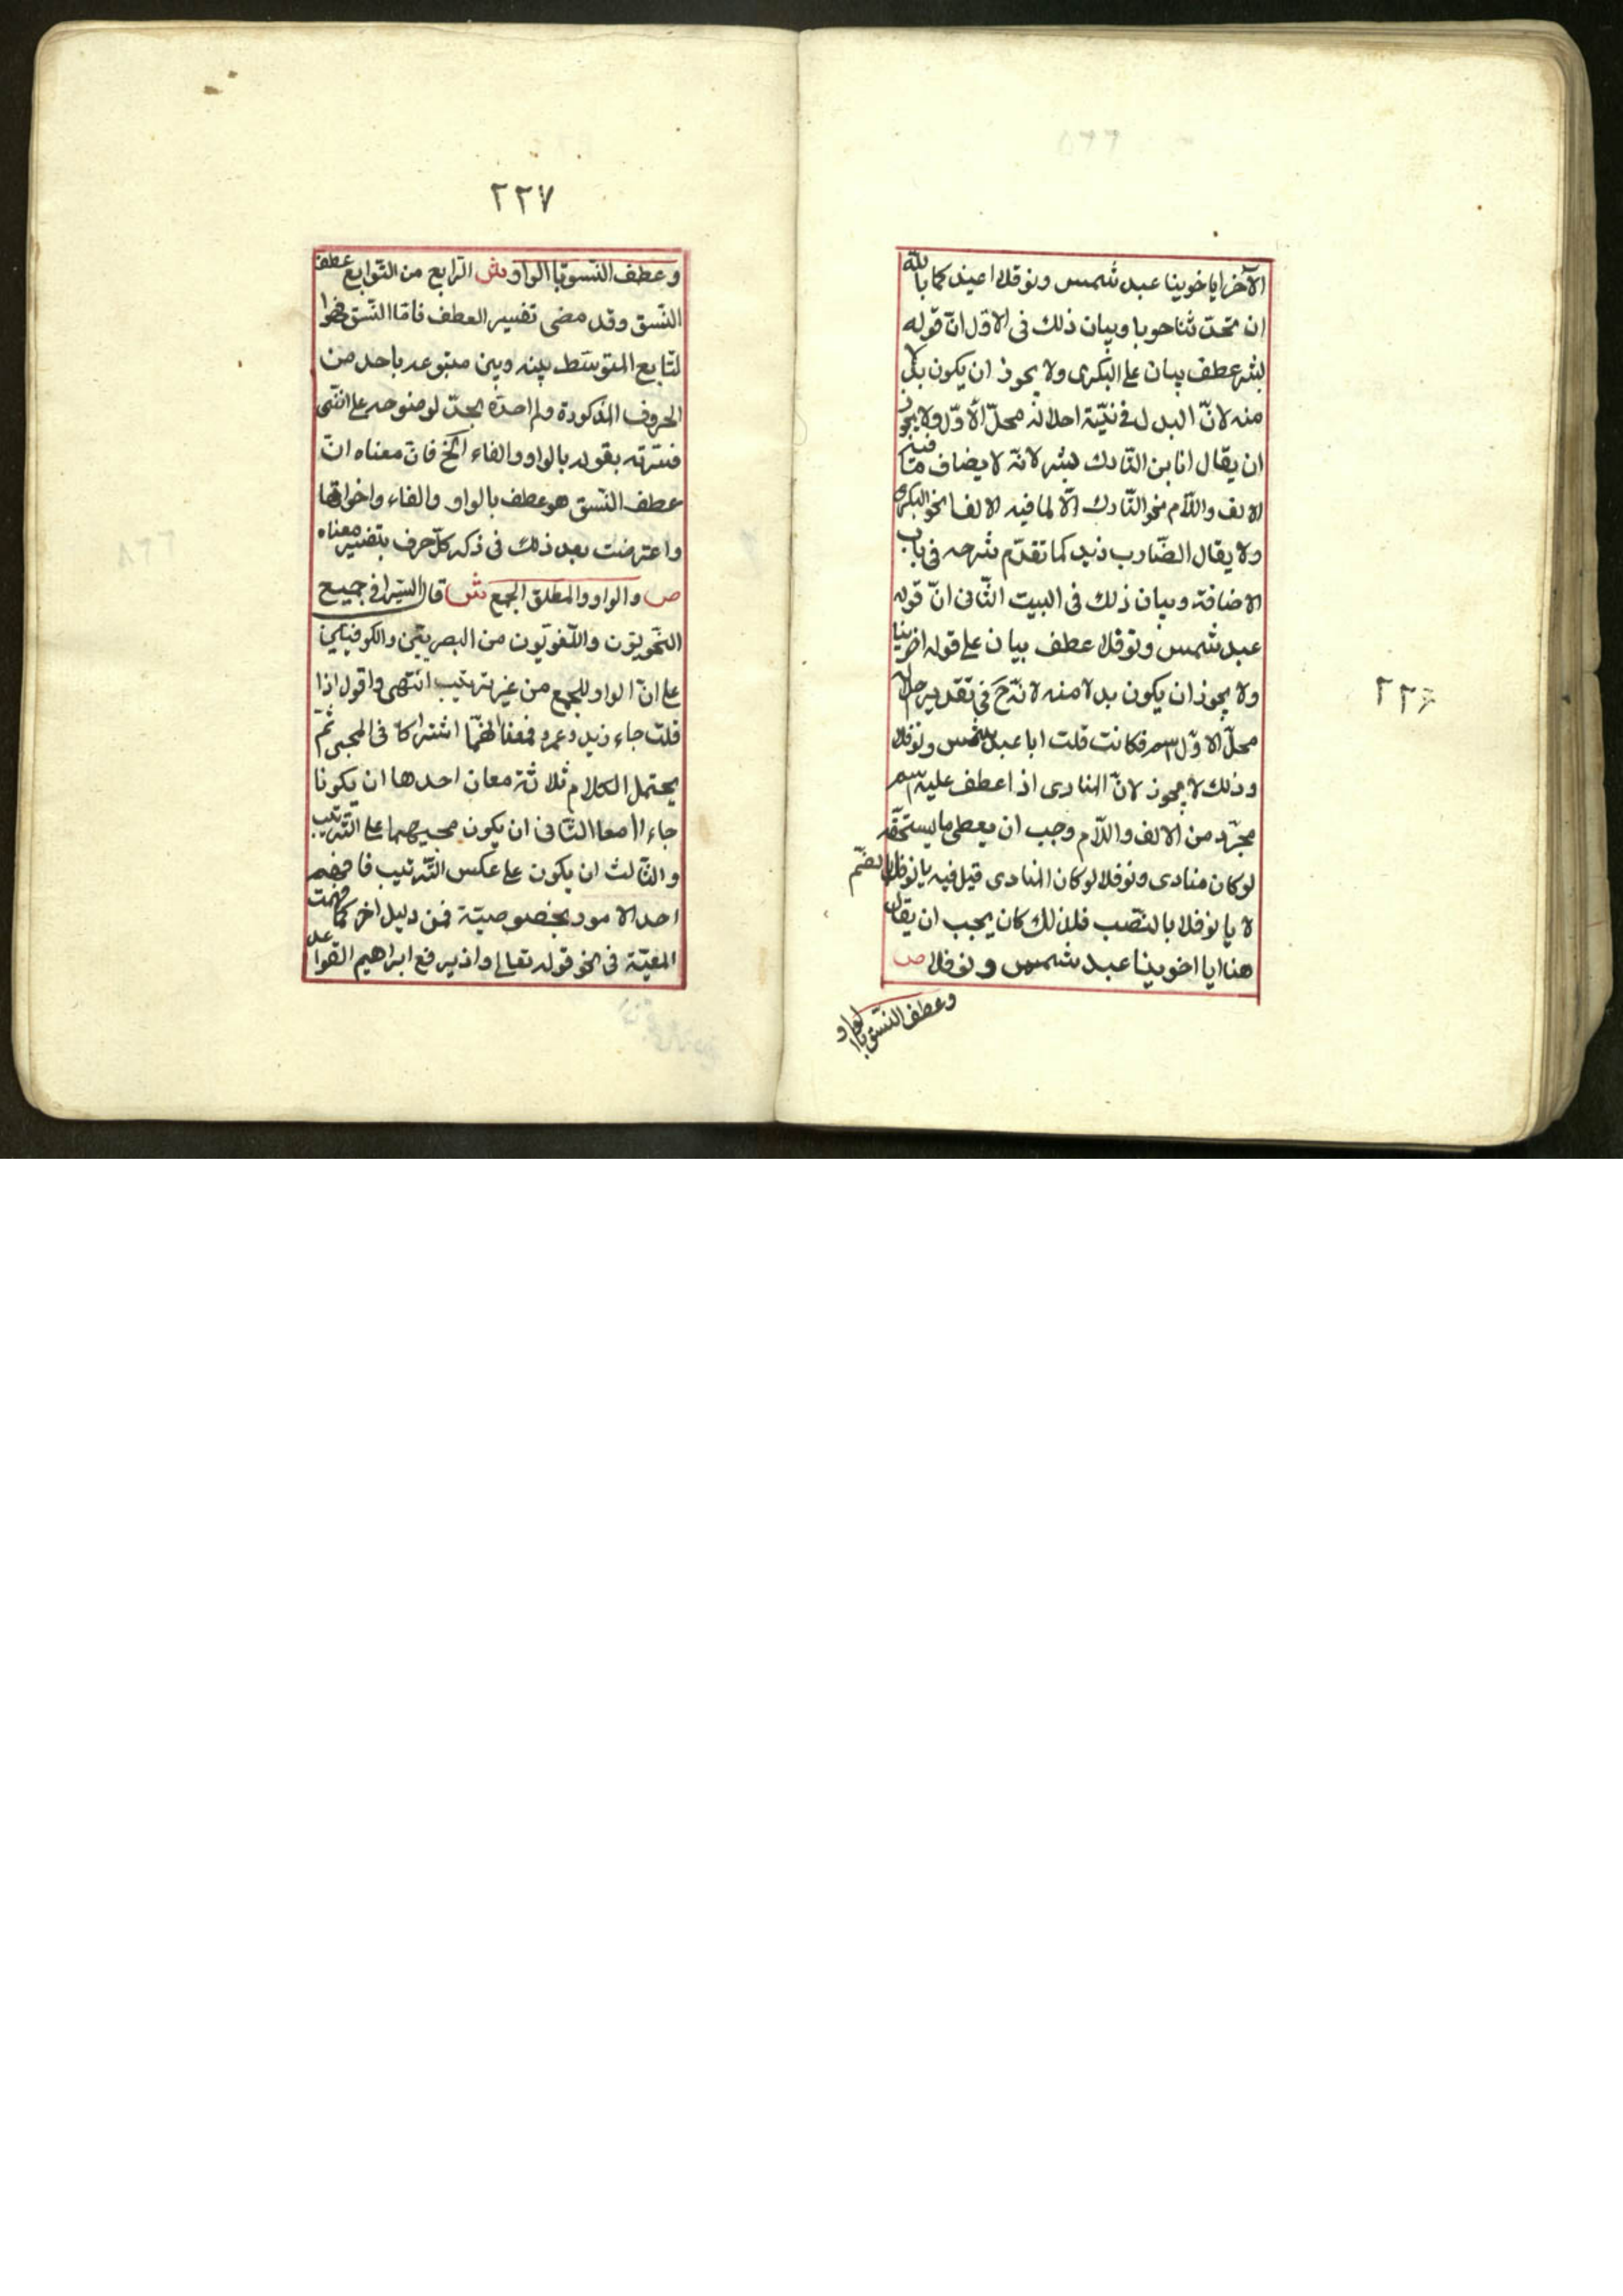 الآخر ايا خوينا عبد شمس ونوفلا اعيذ كما بالله
ان تحدثنا حوبا وبيان ذلك فى الاوّل انّ قوله
بشر عطف بيان على البكرى ولا يجوز ان يكون بدلا
منه لانّ البدل فى نيّة احلاله محلّ الأوّل ولا يجوز
ان يقال انا بن التارك بشر لانّه لا يضاف ما فيه
الالف واللّام نحو التّارك الّا لما فيه الالف نحو البكرى
ولا يقال الضّارب زيد كما تقدّم شرحه فى باب
الاضافة وبيان ذلك فى البيت الثّانى انّ قوله
عبد شمس ونوفلا عطف بيان على قوله اخوينا
ولا يجوز ان يكون بدلا منه لانّه ح فى تقدير احلاله
محلّ الاوّل فكانت قلت ايا عبد شمس ونوفلا
وذلك لا يجوز لانّ المنادى اذا عطف عليه اسم
مجرّد من الالف واللّام وجب ان يعطى ما يستحقّه
لو كان منادى ونوفلا لو كان المنادى قيل فيه يا نوفل بالضّم
لا يا نوفلا بالنّصب فلذلك كان يجب ان يقال
هنا ايا اخوينا عبد شمس ونوفلا ص
وعطف النّسق بالواو
٢٢۶
٢٢٧
وعطف النّسق باالواو ش الرّابع من التّوابع عطف
النّسق وقد مضى تفسير العطف فامّا النّسق فهوا
لتّابع المتوسّط بينه وبين متبوعه باحد من
الحروف المذكورة ولم احدّه بحدّ لوضوحه على انّنى
فسّرته بقوله بالواو والفاء الخ فانّ معناه انّ
عطف النّسق هو عطف بالواو والفاء واخواتها
واعترضت بعد ذلك فى ذكر كلّ حرف بتفسير معناه
ص والواو والمطلق الجمع ش قال السّيرافى جميع
النّحويّون واللّغويّون من البصريّين والكوفيّين
على انّ الواو للجمع من غير ترتيب انتهى واقول اذا
قلت جاء زيد وعمرو فمعناه انّهما اشتركا فى المجئ ثمّ
يحتمل الكلام ثلاثة معان احدها ان يكونا
جاءاا معا الثّانى ان يكون مجيئهما على التّرتيب
والثّالث ان يكون على عكس التّرتيب فا فهم
احد الامور بخصوصيّة فمن دليل اخر كما فهمت
المعيّة فى نحو قوله تعالى واذ يرفع ابراهيم القواعد